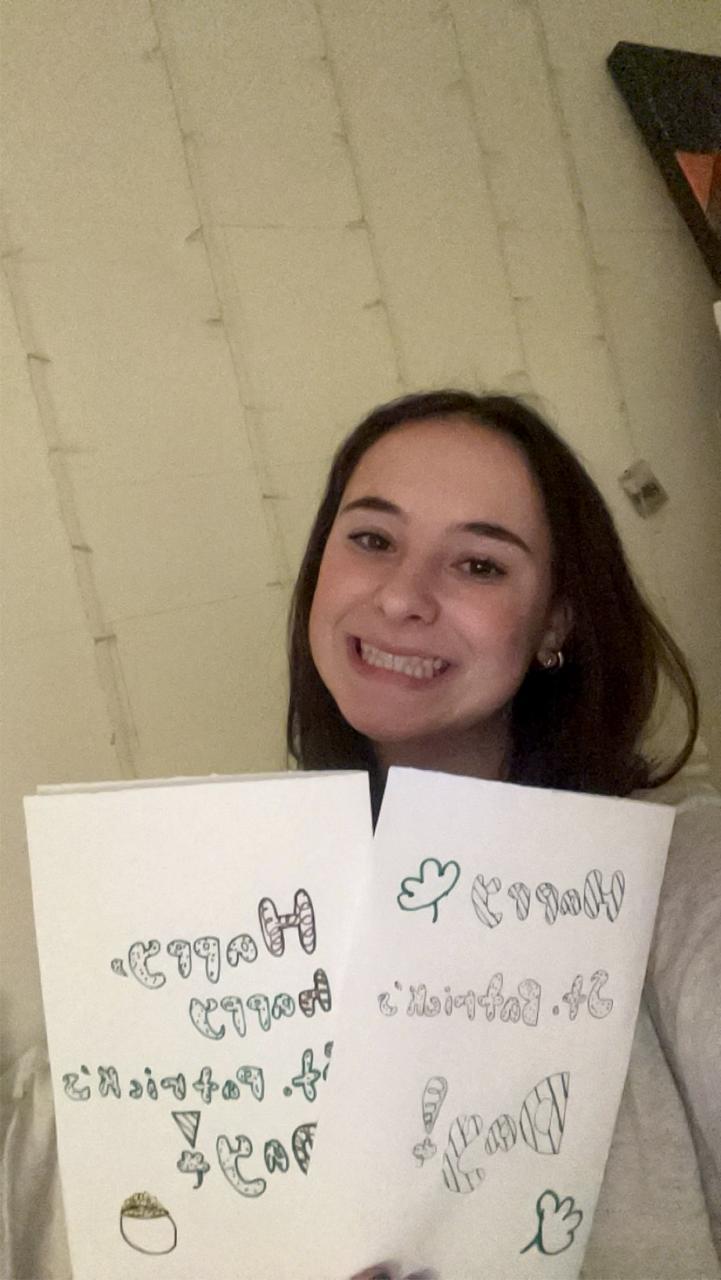 Happy,
Happy
St. Patrick's
Day!
Happy
St. Patrick's
Day!